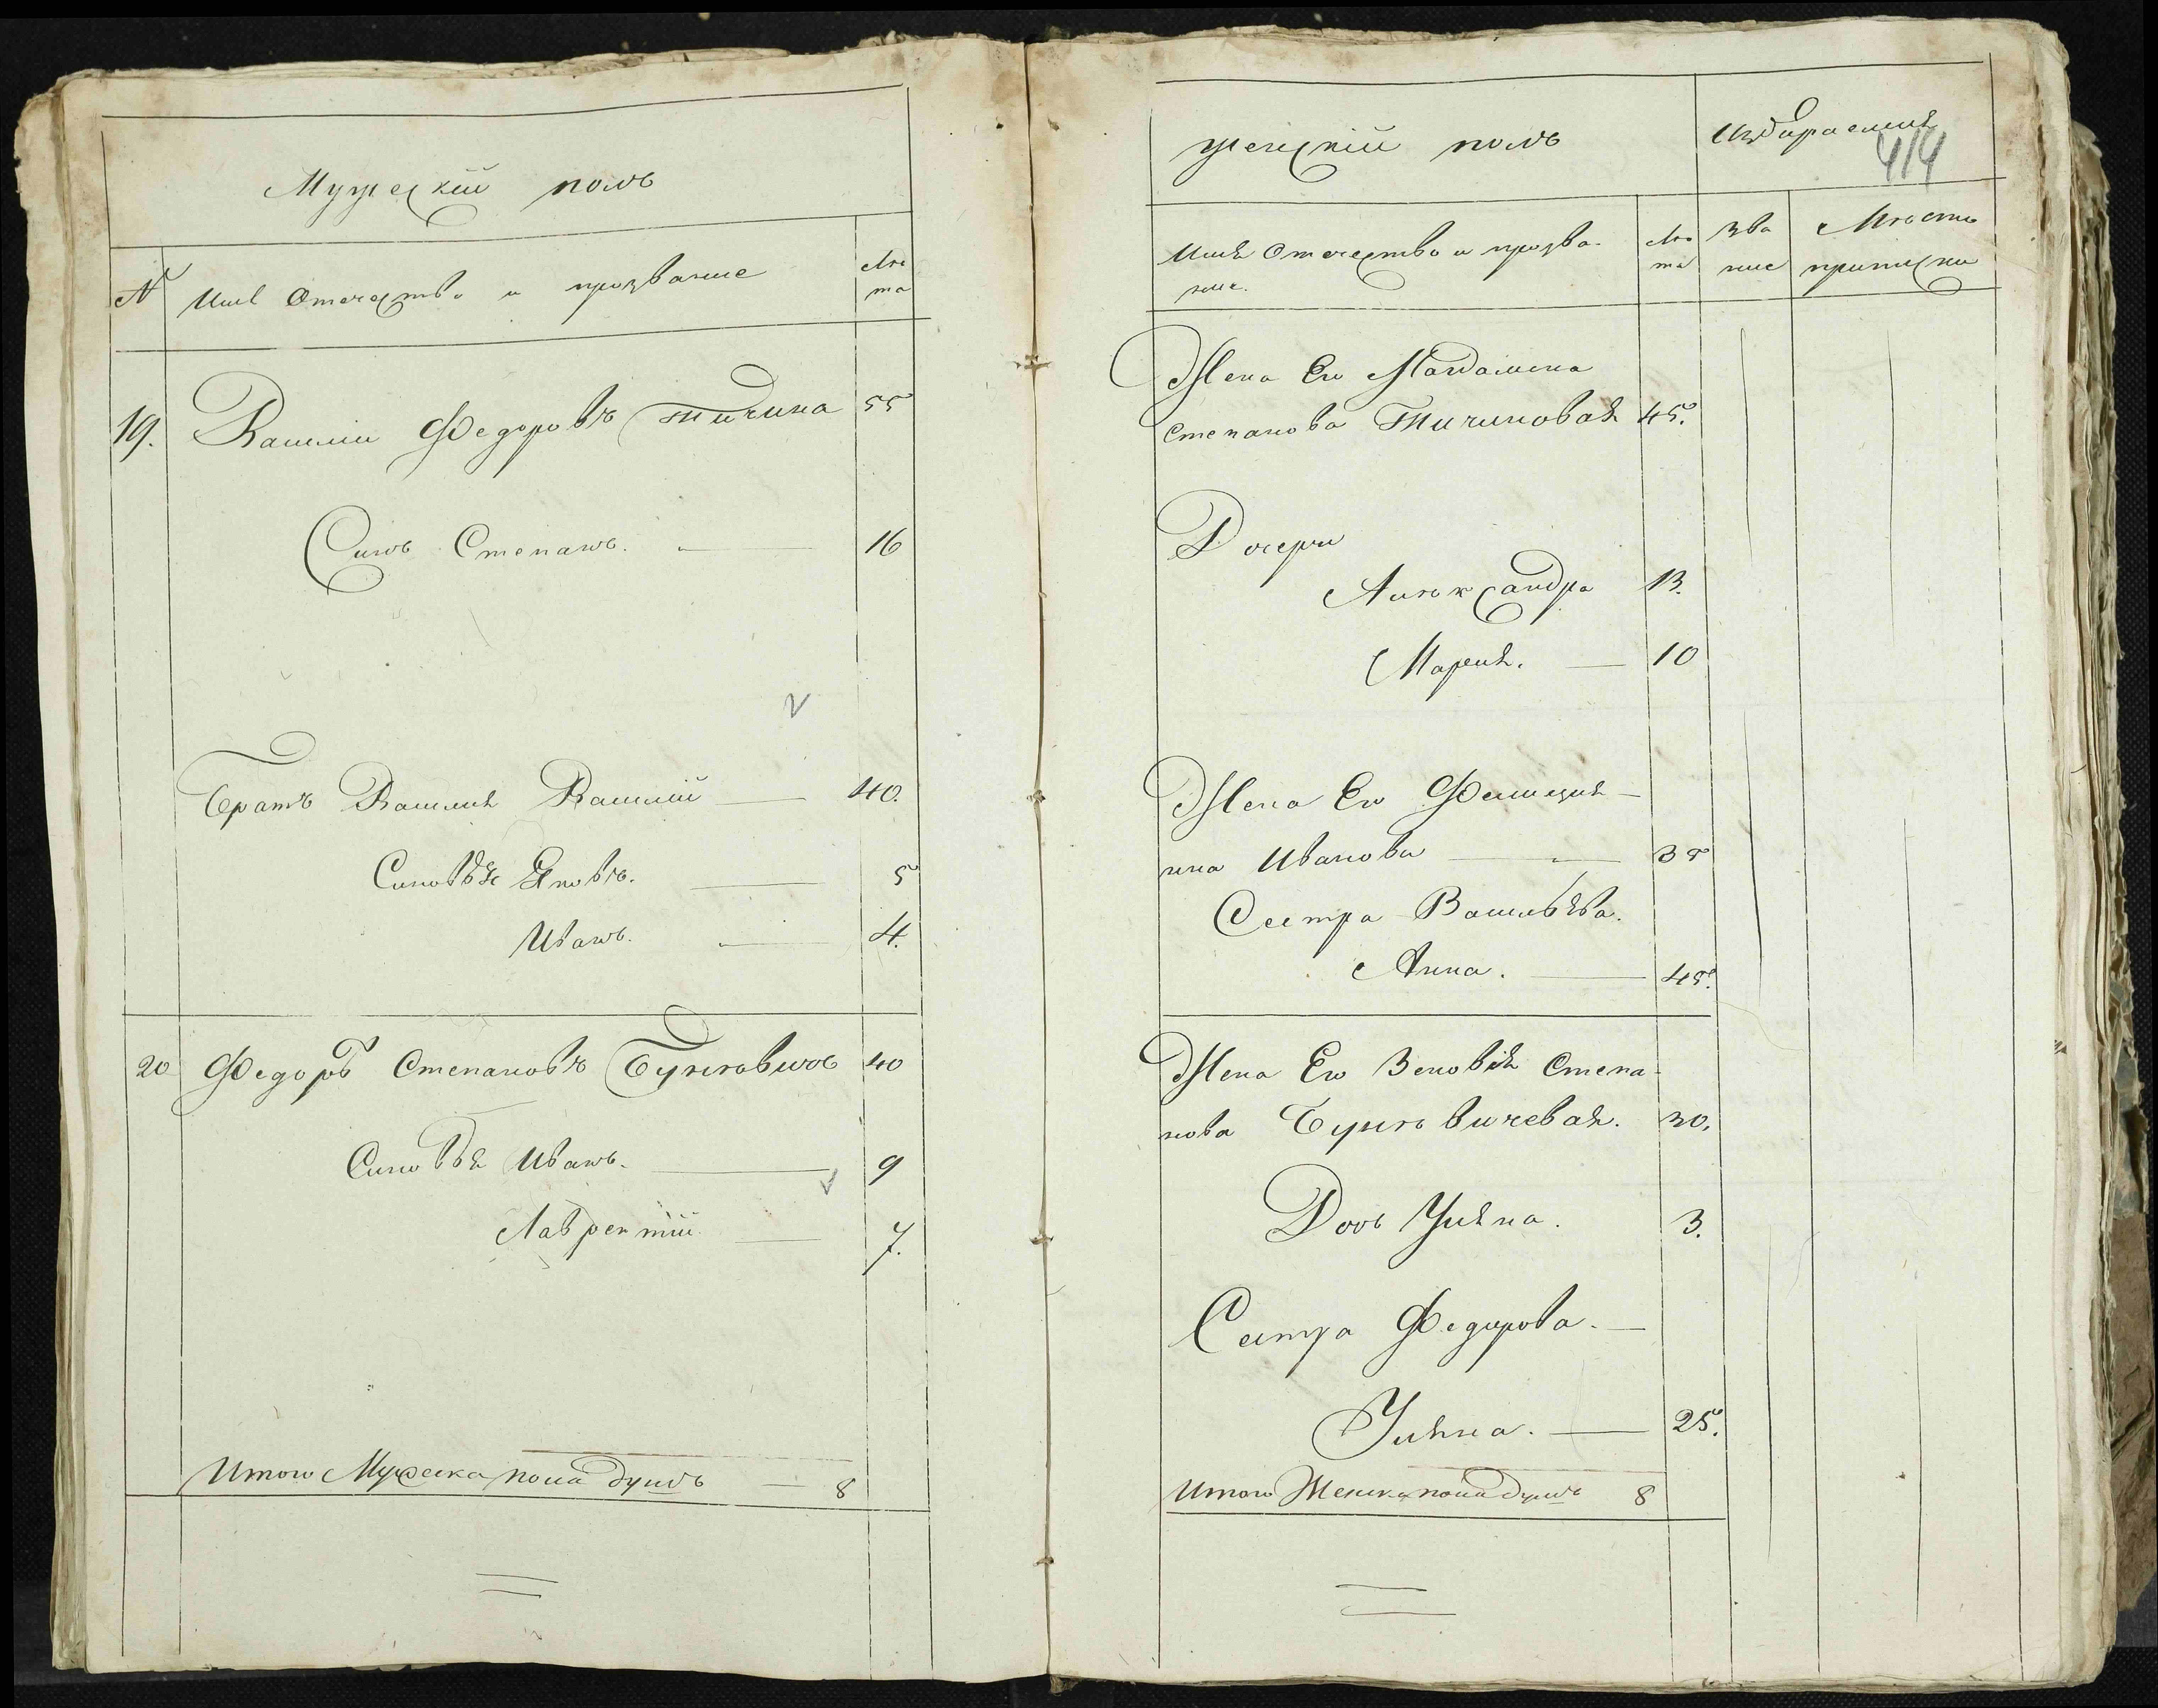 Мужескій полъ
N Имя Отечество и прозвание Лѣ
та
19. Василий Федоровъ Тичина 55
Синъ Степанъ. 16
Братъ Василия Василий 40.
Синовья Яковъ. 5
Иванъ. 4.
20 Федоръ Степановъ 40
Синовья Иванъ. 9
Лаврентий 7.
Итого Мужеска пола душъ 8
женскій полъ
414
Имя Отечество и прозва- Лѣ Зва Место
ние. та ние приписки
Жена Его Магдалена
Степанова Тичиновая 45.
Дочери
Алѣксандра 13.
Мария. 10
Жена Его
на Иванова 35
Сестра Васильява.
Анна. 45.
Жена Его Зеновія Степа-
нова 30.
Дочь Уляна. 3.
Сестра Федорова.
Уляна. 25.
Итого Женска пола душъ 8